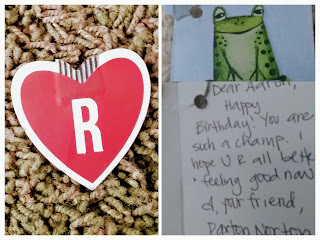 R
Dear Aaron,
Happy
Birthday. You are
such a champ. I
hope U R all better
feeling good now
your friend,
Paxton Norton